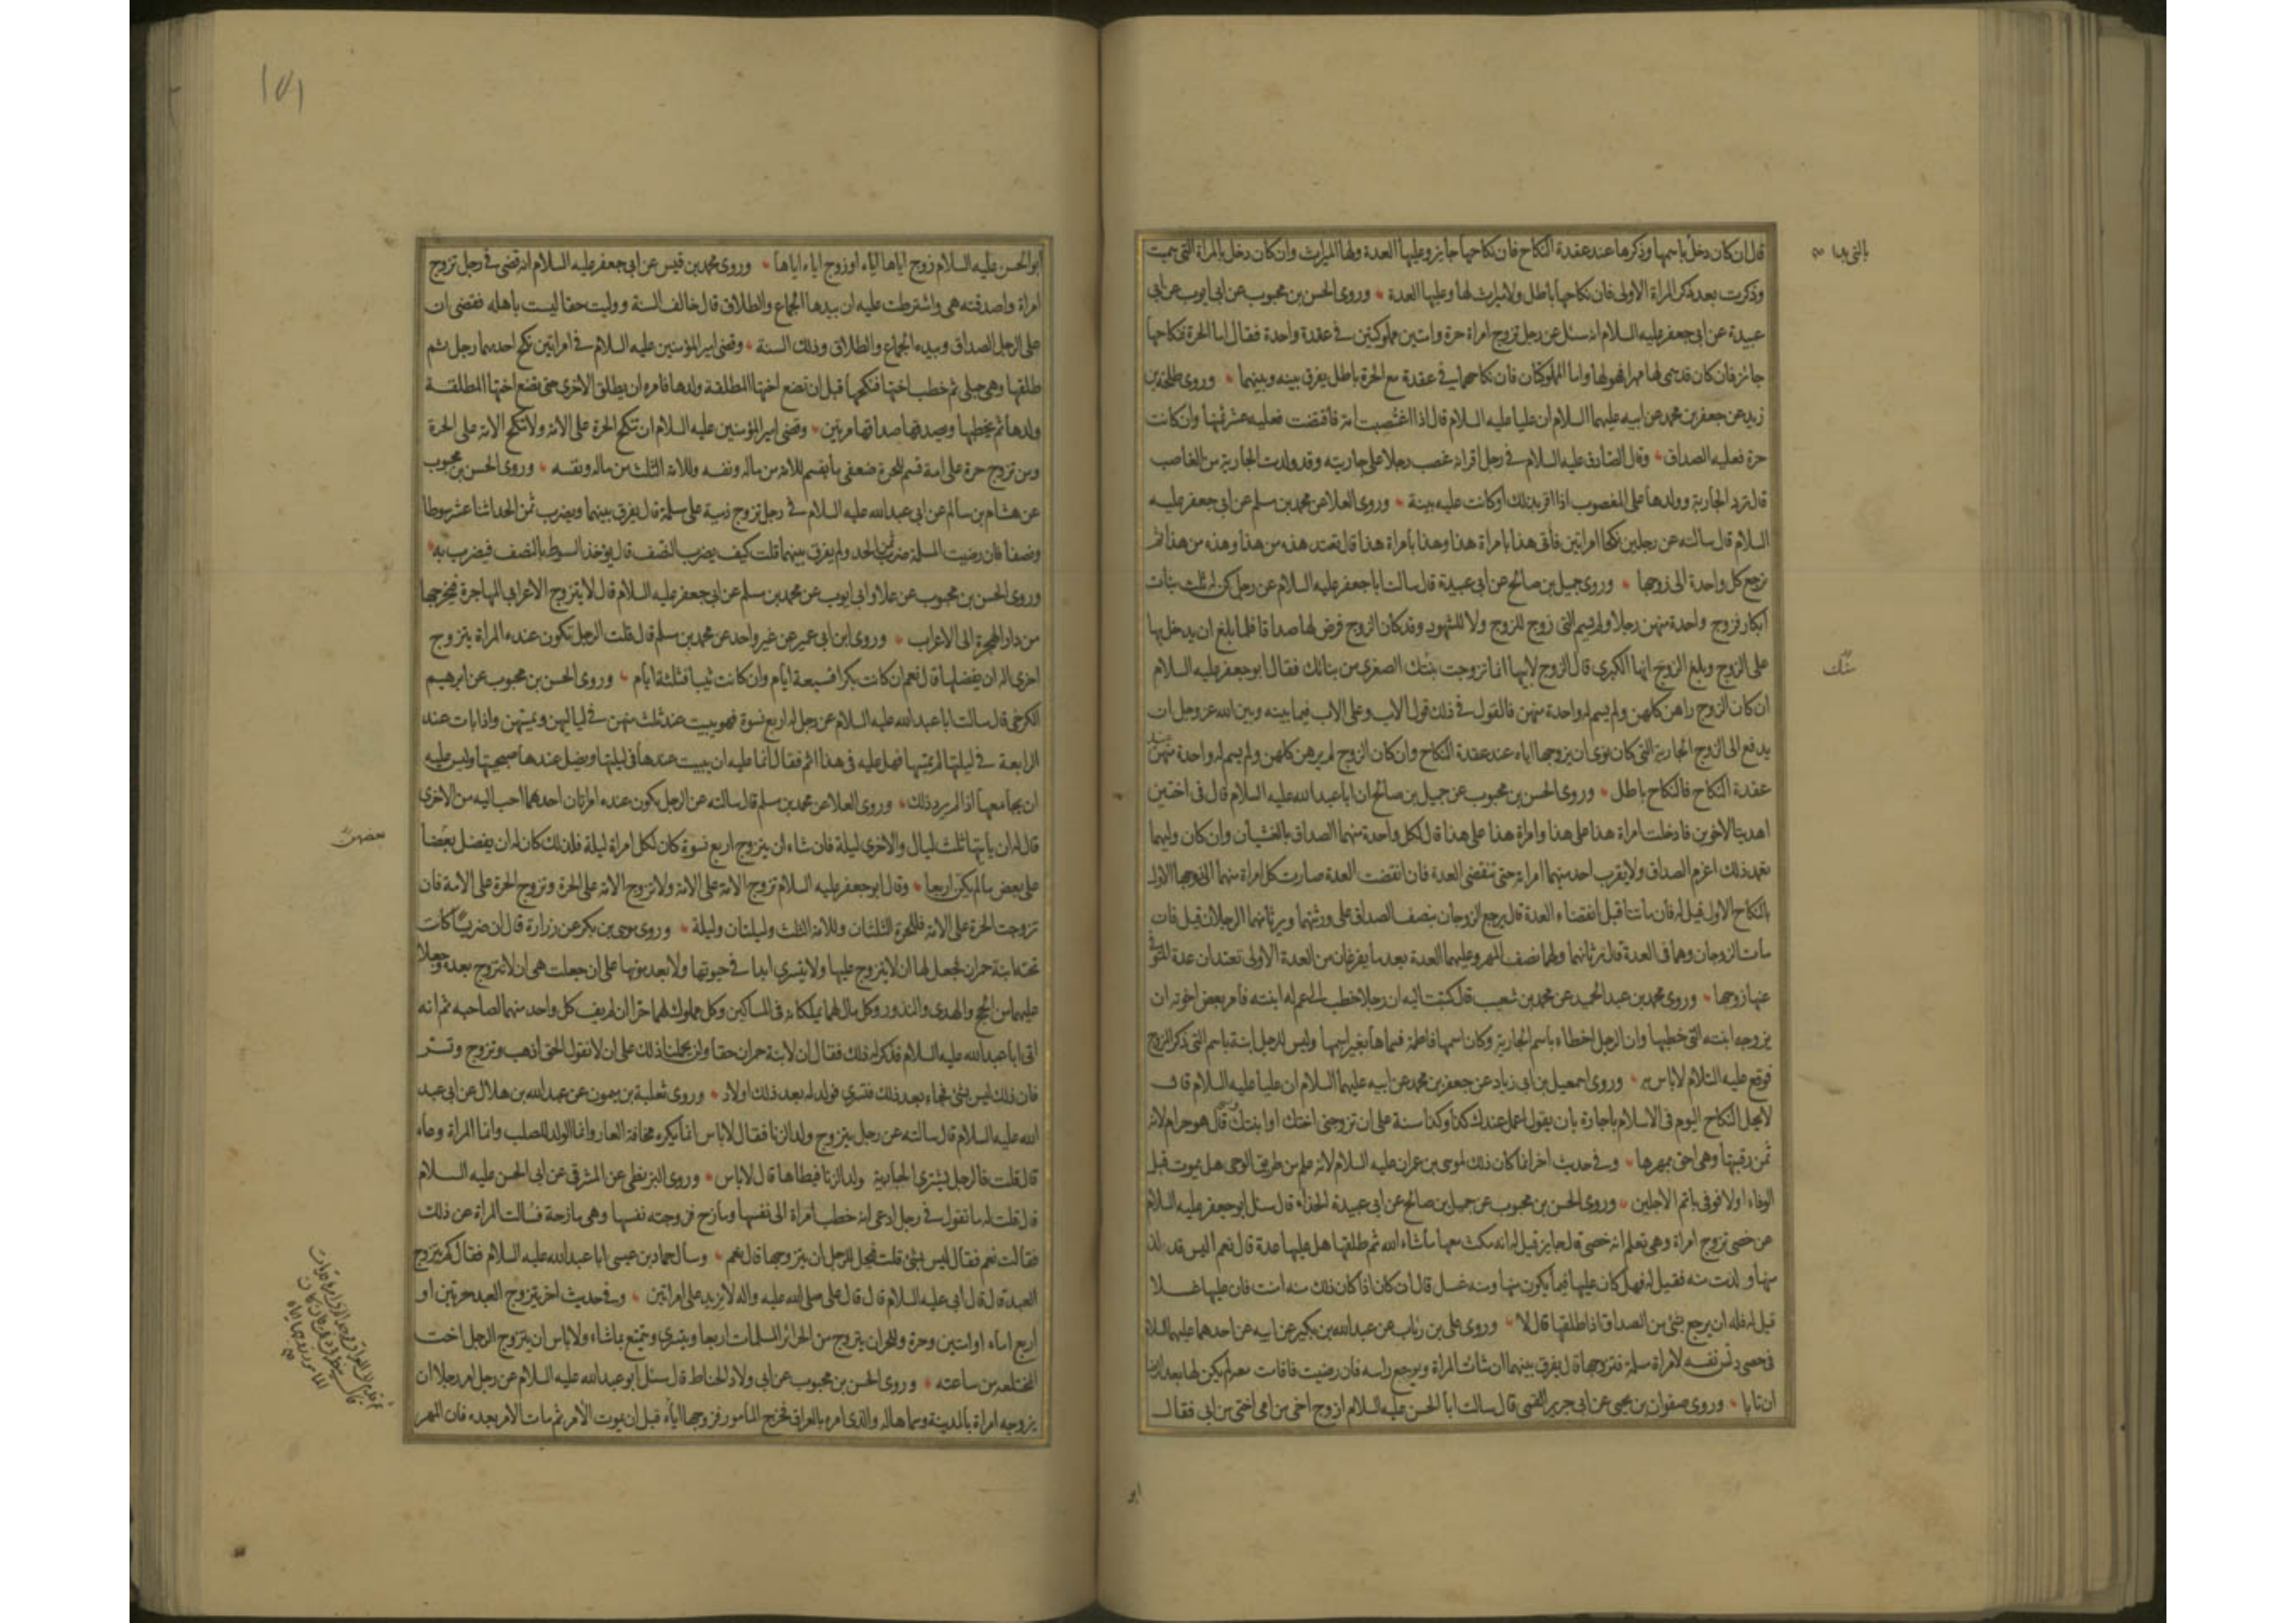 قال ان كان دخل باسمها وذكرها عند عقدة النكاح فان نكاحها جايز وعليها العدة ولها الميراث وان كان دخل بالمراة التى سميت
وذكرت بعد ذكر المراة الاولى فان نكاحها باطل ولا ميراث لها وعليها العدة وروى الحسن بن محبوب عن ابى ايوب عن ابى
عبيدة عن ابى جعفر عليه السلام انه سئل عن رجل تزوج امراة حرة وامتين مملوكتين فى عقدة واحدة فقال اما الحرة فنكاحها
جائز فان كان قد سمى لها مهرا فهو لها واما المملوكتان فان نكاحهما فى عقدة مع الحرة باطل يفرق بينه وبينهما وروى طلحة بن
زيد عن جعفر بن محمد عن ابيه عليهما السلام ان عليا عليه السلام قال اذا اغتصبت امة فاقتضت فعليه عشر ثمنها وان كانت
حرة فعليه الصداق وقال الصادق عليه السلام فى رجل اقر انه غصب رجلا على جاريته وقد ولدت الجارية من الغاصب
قال ترد الجارية وولدها على المغصوب اذا اقر بذلك او كانت عليه بينة وروى العلا عن محمد بن مسلم عن ابى جعفر عليه
السلام قال سالته عن رجلين نكحا امراتين فاتى هذا بامراة هذا وهذا بامراة هذا قال تعتد هذه من هذا وهذه من هذا ثم
ترجع كل واحدة الى زوجها وروى جميل بن صالح عن ابى عبيدة قال سالت ابا جعفر عليه السلام عن رجل كن له ثلث بنات
ابكار فزوج واحدة منهن رجلا ولم يسم التى زوج للزوج ولا للشهود وقد كان الزوج فرض لها صداقا فلما بلغ ان يدخل بها
على الزوج وبلغ الزوج انها الكبرى قال الزوج لابيها انما تزوجت بنتك الصغرى من بناتك فقال ابو جعفر عليه السلام
ان كان الزوج راهن كلهن ولم يسم له واحدة منهن فالقول فى ذلك قول الاب وعلى الاب فيما بينه وبين الله عز وجل ان
يدفع الى الزوج الجارية التى كان نوى ان يزوجها اياه عند عقدة النكاح وان كان الزوج لم يرهن كلهن ولم يسم له واحدة منهن عند
عقدة النكاح فالنكاح باطل وروى الحسن بن محبوب عن جميل بن صالح ان ابا عبد الله عليه السلام قال فى اختين
اهديتا لاخوين فادخلت امراة هذا على هذا وامراة هذا على هذا قال لكل واحدة منهما الصداق بالغشيان وان كان وليهما
تعمد ذلك اغرم الصداق ولا يقرب احد منهما امراته حتى تنقضى العدة فان انقضت العدة صارت كل امراة منهما الى زوجها الاول
بالنكاح الاول قيل له فان ماتتا قبل انقضاء العدة قال يرجع الزوجان بنصف الصداق على ورثتهما ويرثانهما الرجلان قيل فان
مات الزوجان وهما فى العدة قال ترثانهما ولهما نصف المهر وعليهما العدة بعد ما يفرغان من العدة الاولى تعتدان عدة المتوفى
عنها زوجها وروى محمد بن عبد الحميد عن محمد بن شعيب قال كتبت اليه ان رجلا خطب الى عم له ابنته فامر بعض اخوته ان
يزوجه ابنته التى خطبها وان الرجل اخطاء باسم الجارية وكان اسمها فاطمة فسماها بغير اسمها وليس للرجل ابنة باسم التى ذكر الزوج
فوقع عليه السلام لا باس به وروى اسمعيل بن ابى زياد عن جعفر بن محمد عن ابيه عليهما السلام ان عليا عليه السلام قال
لا يحل النكاح اليوم فى الاسلام باجارة بان يقول اعمل عندك كذا وكذا سنة على ان تزوجنى اختك او ابنتك قال هو حرام لانه
ثمن رقبتها وهى احق بمهرها وفى حديث اخر انما كان ذلك لموسى بن عمران عليه السلام لانه علم من طريق الوحى هل يموت قبل
الوفاء اولا فوفى باتم الاجلين وروى الحسن بن محبوب عن جميل بن صالح عن ابى عبيدة الحذاء قال سئل ابو جعفر عليه السلام
عن خصى تزوج امراة وهى تعلم انه خصى قال جايز قيل له انه مكث معها ما شاء الله ثم طلقها هل عليها عدة قال نعم اليس قد لذ
منها ولذت منه فقيل له فهل كان عليها فيما يكون منها ومنه غسل قال ان كان اذا كان ذلك منه امنت فان عليها غسلا
قيل له فله ان يرجع بشئ من الصداق اذا طلقها قال لا وروى على بن رئاب عن عبد الله بن بكير عن ابيه عن احدهما عليهما السلام
فى خصى دلس نفسه لامراة مسلمة فتزوجها قال يفرق بينهما ان شائت المراة ويوجع راسه فان رضيت واقامت معه لم يكن لها بعد رضا
ان تابا وروى صفوان بن يحيى عن ابى جرير القمى قال سالت ابا الحسن عليه السلام ازوج اخى من امى اختى من ابى فقال
ابو
ابو الحسن عليه السلام زوج اياها اياه او زوج اياه اياها وروى محمد بن قيس عن ابى جعفر عليه السلام انه قضى فى رجل تزوج
امراة واصدقته هى واشترطت عليه ان بيدها الجماع والطلاق قال خالف السنة ووليت حقا ليست باهله فقضى ان
على الرجل الصداق وبيده الجماع والطلاق وذلك السنة وقضى امير المؤمنين عليه السلام فى امراتين نكح احديهما رجل ثم
طلقها وهى حبلى ثم خطب اختها فنكحها قبل ان تضع اختها المطلقة ولدها فامره ان يطلق الاخرى حتى تضع اختها المطلقة
ولدها ثم يخطبها ويصدقها صداقها مرتين وقضى امير المؤمنين عليه السلام ان تنكح الحرة على الامة ولا تنكح الامة على الحرة
ومن تزوج حرة على امة قسم للحرة ضعفى ما يقسم للامة من ماله ونفسه وللامة الثلث من ماله ونفسه وروى الحسن بن محبوب
عن هشام بن سالم عن ابى عبد الله عليه السلام فى رجل تزوج ذمية على مسلمة قال يفرق بينهما ويضرب ثمن الحد اثنا عشر سوطا
ونصفا فان رضيت المسلمة ضرب ثمن الحد ولم يفرق بينهما قلت كيف يضرب النصف قال يؤخذ السوط بالنصف فيضرب به
وروى الحسن بن محبوب عن علا وابى ايوب عن محمد بن مسلم عن ابى جعفر عليه السلام قال لا يتزوج الاعرابى المهاجرة فيخرجها
من دار الهجرة الى الاعراب وروى ابن ابى عمير عن غير واحد عن محمد بن مسلم قال قلت الرجل تكون عنده المراة يتزوج
اخرى اله ان يفضلها قال نعم ان كانت بكرا فسبعة ايام وان كانت ثيبا فثلثة ايام وروى الحسن بن محبوب عن ابرهيم
الكرخى قال سالت ابا عبد الله عليه السلام عن رجل له اربع نسوة فهو يبيت عند ثلث منهن فى لياليهن ويمسهن واذا بات عند
الرابعة فى ليلتها لم يمسها فهل عليه فى هذا اثم فقال انما عليه ان يبيت عندها فى ليلتها ويضل عندها صبيحتها وليس عليه
ان يجامعها اذا لم يرد ذلك وروى العلا عن محمد بن مسلم قال سالته عن الرجل يكون عنده امراتان احدهما احب اليه من الاخرى
قال له ان ياتيها ثلث ليال والاخرى ليلة فان شاء ان يتزوج اربع نسوة كان لكل امراة ليلة فلذلك كان له ان يفضل بعضا
على بعض ما لم يكن اربعا وقال ابو جعفر عليه السلام تزوج الامة على الامة ولا تزوج الامة على الحرة وتزوج الحرة على الامة فان
تزوجت الحرة على الامة فللحرة الثلثان وللامة الثلث وليلتان وليلة وروى موسى بن بكر عن زرارة قال ان ضريسا كانت
تحته ابنة حمران فجعل لها ان لا يتزوج عليها ولا يتسرى ابدا فى حيوتها ولا بعد موتها على ان جعلت هى ان لا تتزوج بعده وجعلا
عليهما من الحج والهدى والنذور وكل مال لهما يملكانه فى المساكين وكل مملوك لهما حرا ان لم يف كل واحد منهما لصاحبه ثم انه
اتى ابا عبد الله عليه السلام فذكر له ذلك فقال ان لابنة حمران حقا ولن يحملنا ذلك على ان لا نقول الحق اذهب وتزوج وتسر
فان ذلك ليس بشئ فجاء بعد ذلك فتسرى فولد له بعد ذلك اولاد وروى ثعلبة بن ميمون عن عبد الله بن هلال عن ابى عبد
الله عليه السلام قال سالته عن رجل يتزوج ولد الزنا فقال لا باس انما يكره مخافة العار وانما الولد للصلب وانما المراة وعاء
قال قلت فالرجل يشترى الجارية ولد الزنا فيطاها قال لا باس وروى البزنطى عن المشرقى عن ابى الحسن عليه السلام
قال قلت له ما تقول فى رجل ادعى انه خطب امراة الى نفسها ومازح فزوجته نفسها وهى مازحة فسالت المراة عن ذلك
فقالت نعم فقال ليس بشئ قلت فيحل للرجل ان يتزوجها قال نعم وسال حماد بن عيسى ابا عبد الله عليه السلام فقال كم يتزوج
العبد قال قال ابى عليه السلام قال قال على صلى الله عليه واله لا يزيد على امراتين وفى حديث اخر يتزوج العبد حرتين او
اربع اماء او امتين وحرة وللحر ان يتزوج من الحرائر المسلمات اربعا ويتسرى ويتمتع ما شاء ولا باس ان يتزوج الرجل اخت
المختلعه من ساعته وروى الحسن بن محبوب عن ابى ولاد الحناط قال سئل ابو عبد الله عليه السلام عن رجل امر رجلا ان
يزوجه امراة بالمدينة وسماها له والذى امره بالعراق فخرج المامور فزوجها اياه قبل ان يموت الامر ثم مات الامر بعده فان المهر